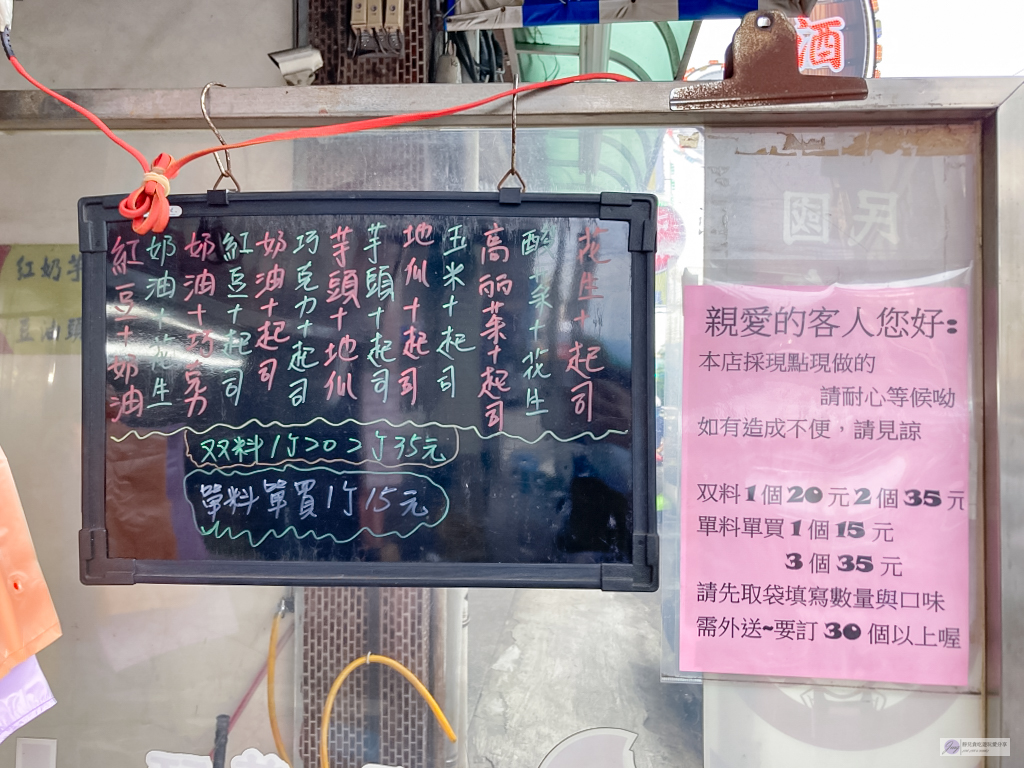 酒
花生+起司
酸菜+花生
高丽菜+起司
玉米+起司
地瓜+起司
芋頭+起司
芋頭+地瓜
巧克力+起司
奶油+起司
紅豆+起司
奶油+巧克力
奶油+花生
紅豆+奶油
双料1个20 2个35元
單料單買1个15元
親愛的客人您好:
本店採現點現做的
請耐心等候呦
如有造成不便，請見諒
双料1個20元2個35元
單料單買1個15元
3個35元
請先取袋填寫數量與口味
需外送~要訂30個以上喔
紅奶芋
豆油頭
民國